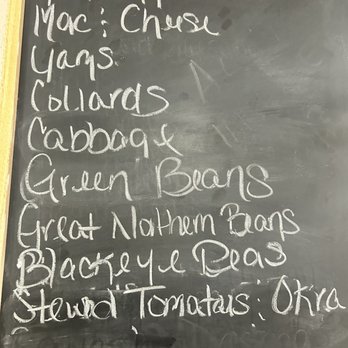 Mac ; Cheese
Yams
Collards
Cabbage
Green Beans
Great Northern Beans
Blackeye Peas
Stewed Tomatoes ; Okra